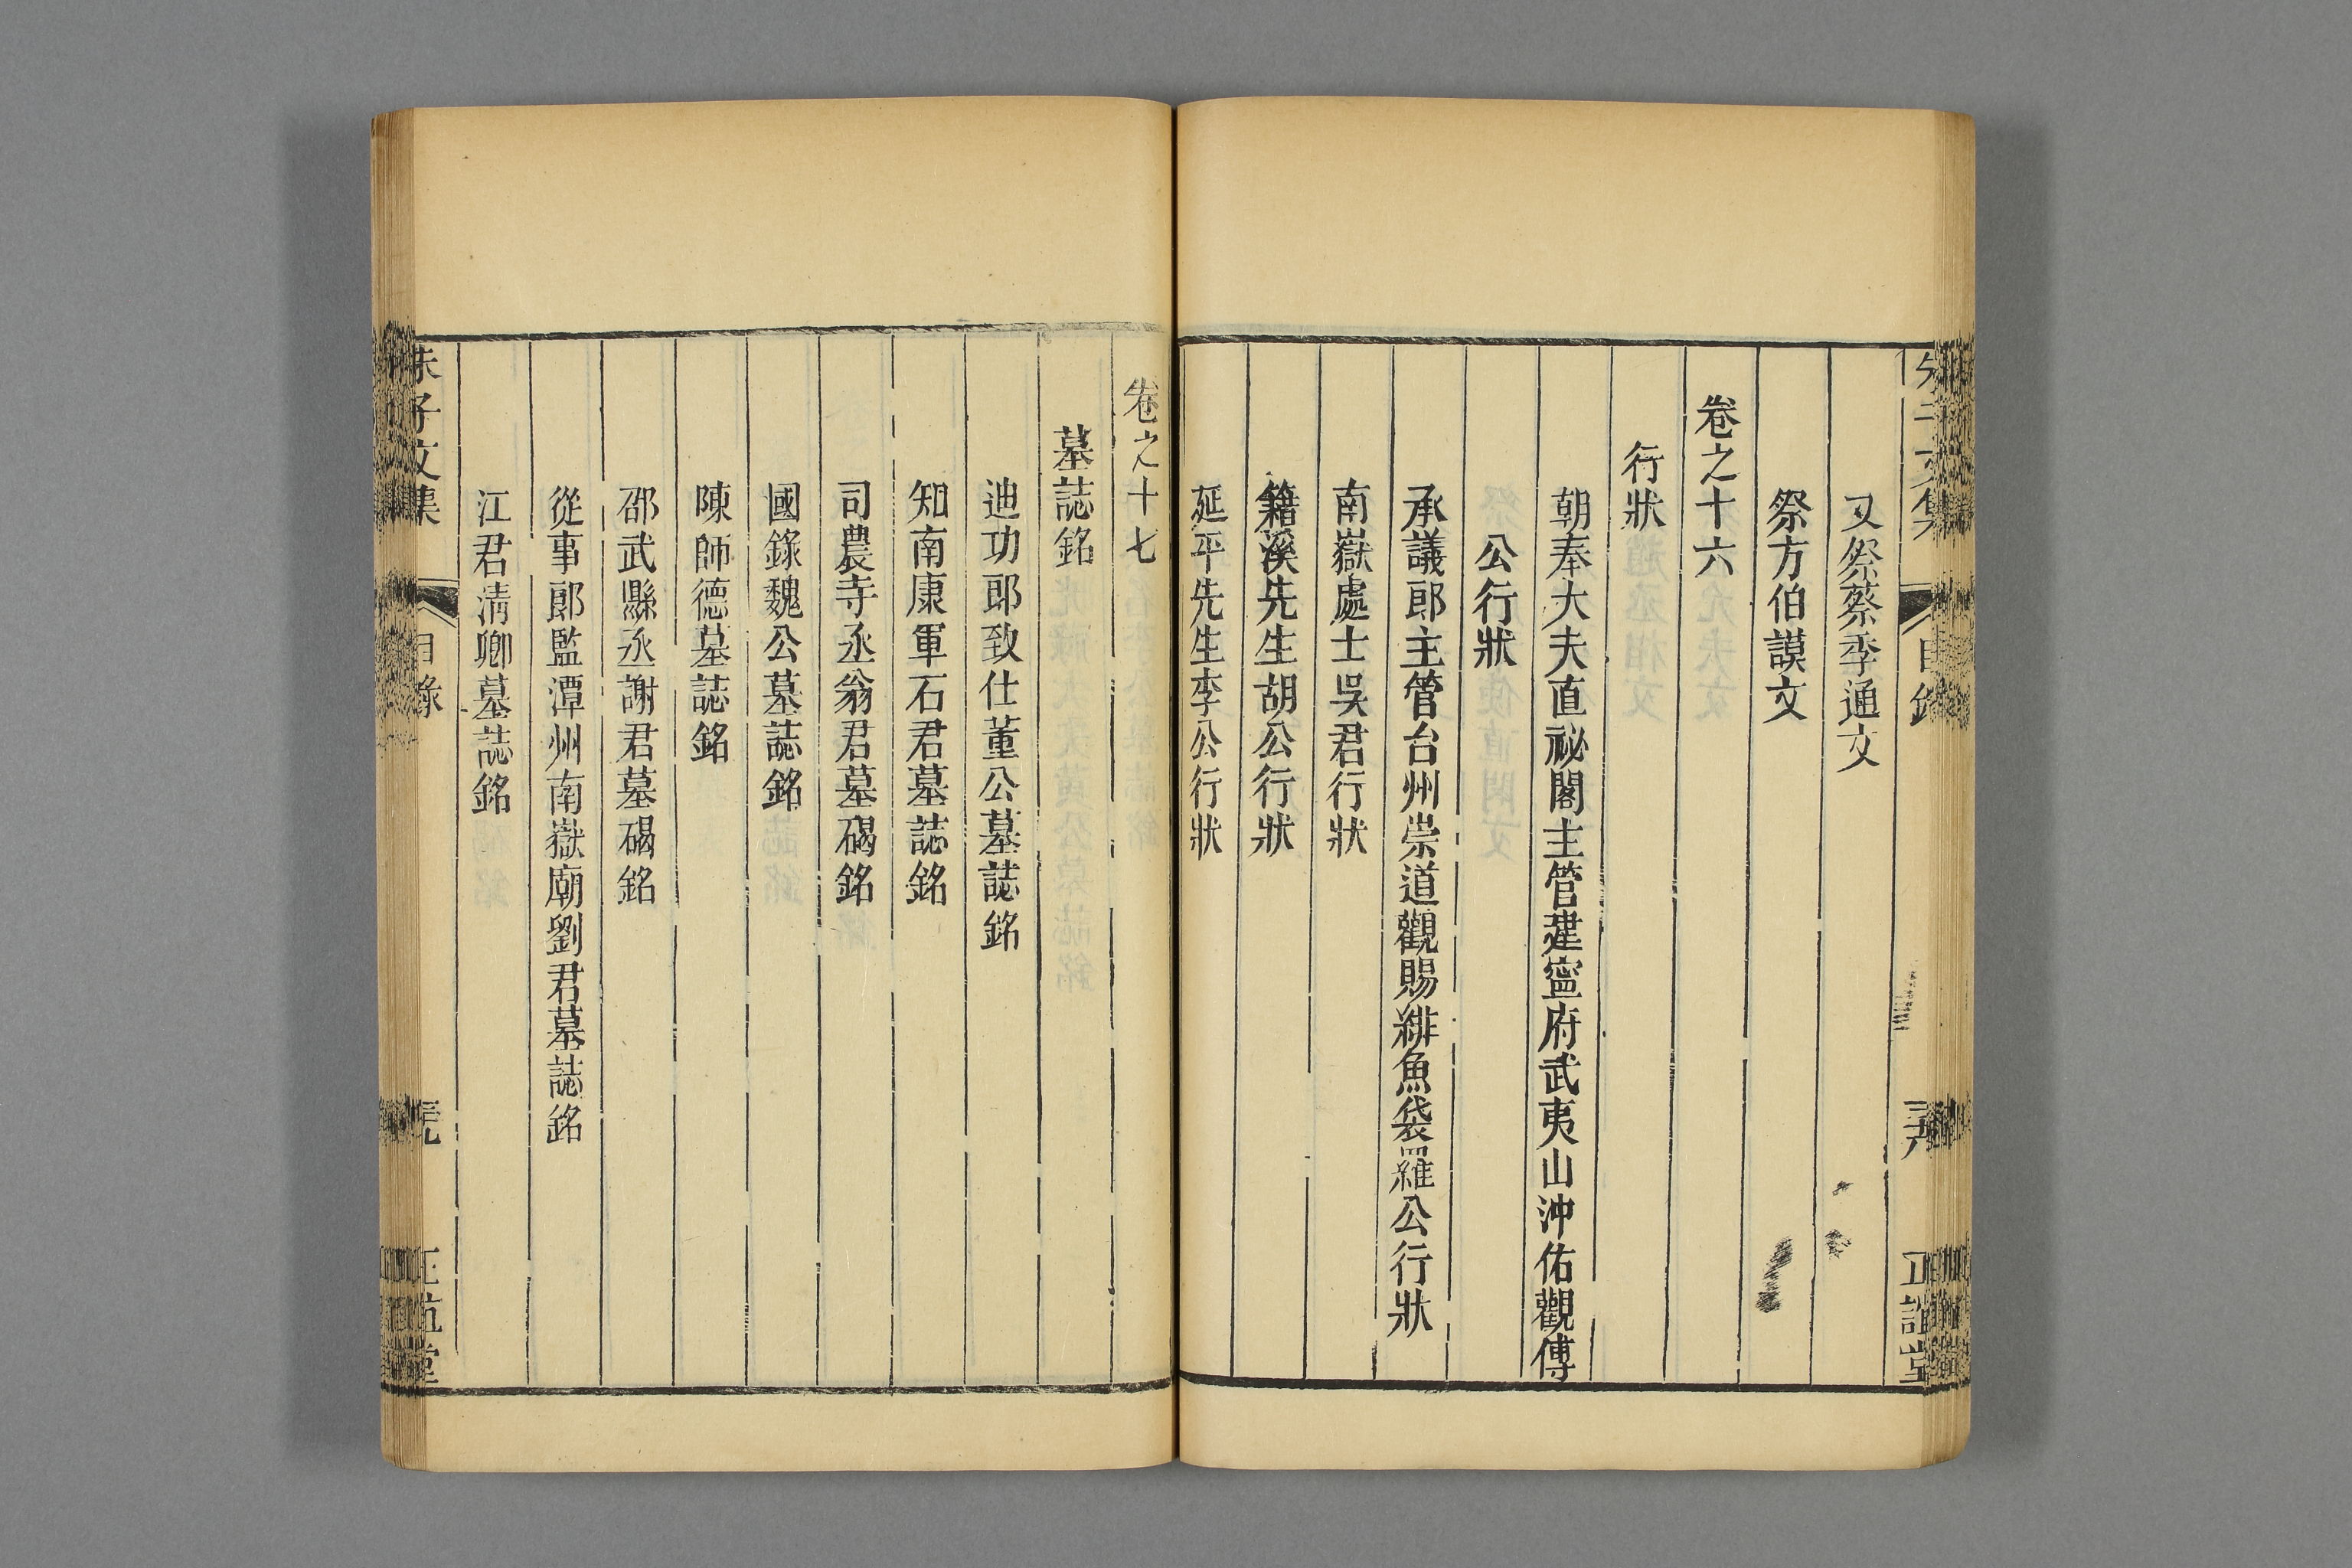 又祭蔡季通文
祭方伯謨文
卷之十六
行狀
朝奉大夫直祕閣主管建寧府武夷山沖佑觀傅
公行狀
承議郎主管台州崇道觀賜緋魚袋羅公行狀
南嶽處士吳君行狀
籍溪先生胡公行狀
延平先生李公行狀
卷之十七
墓誌銘
迪功郎致仕董公墓誌銘
知南康軍石君墓誌銘
司農寺丞翁君墓碣銘
國錄魏公墓誌銘
陳師德墓誌銘
邵武縣丞謝君墓碣銘
從事郎監潭州南嶽廟劉君墓誌銘
江君清卿墓誌銘
朱子文集
目錄